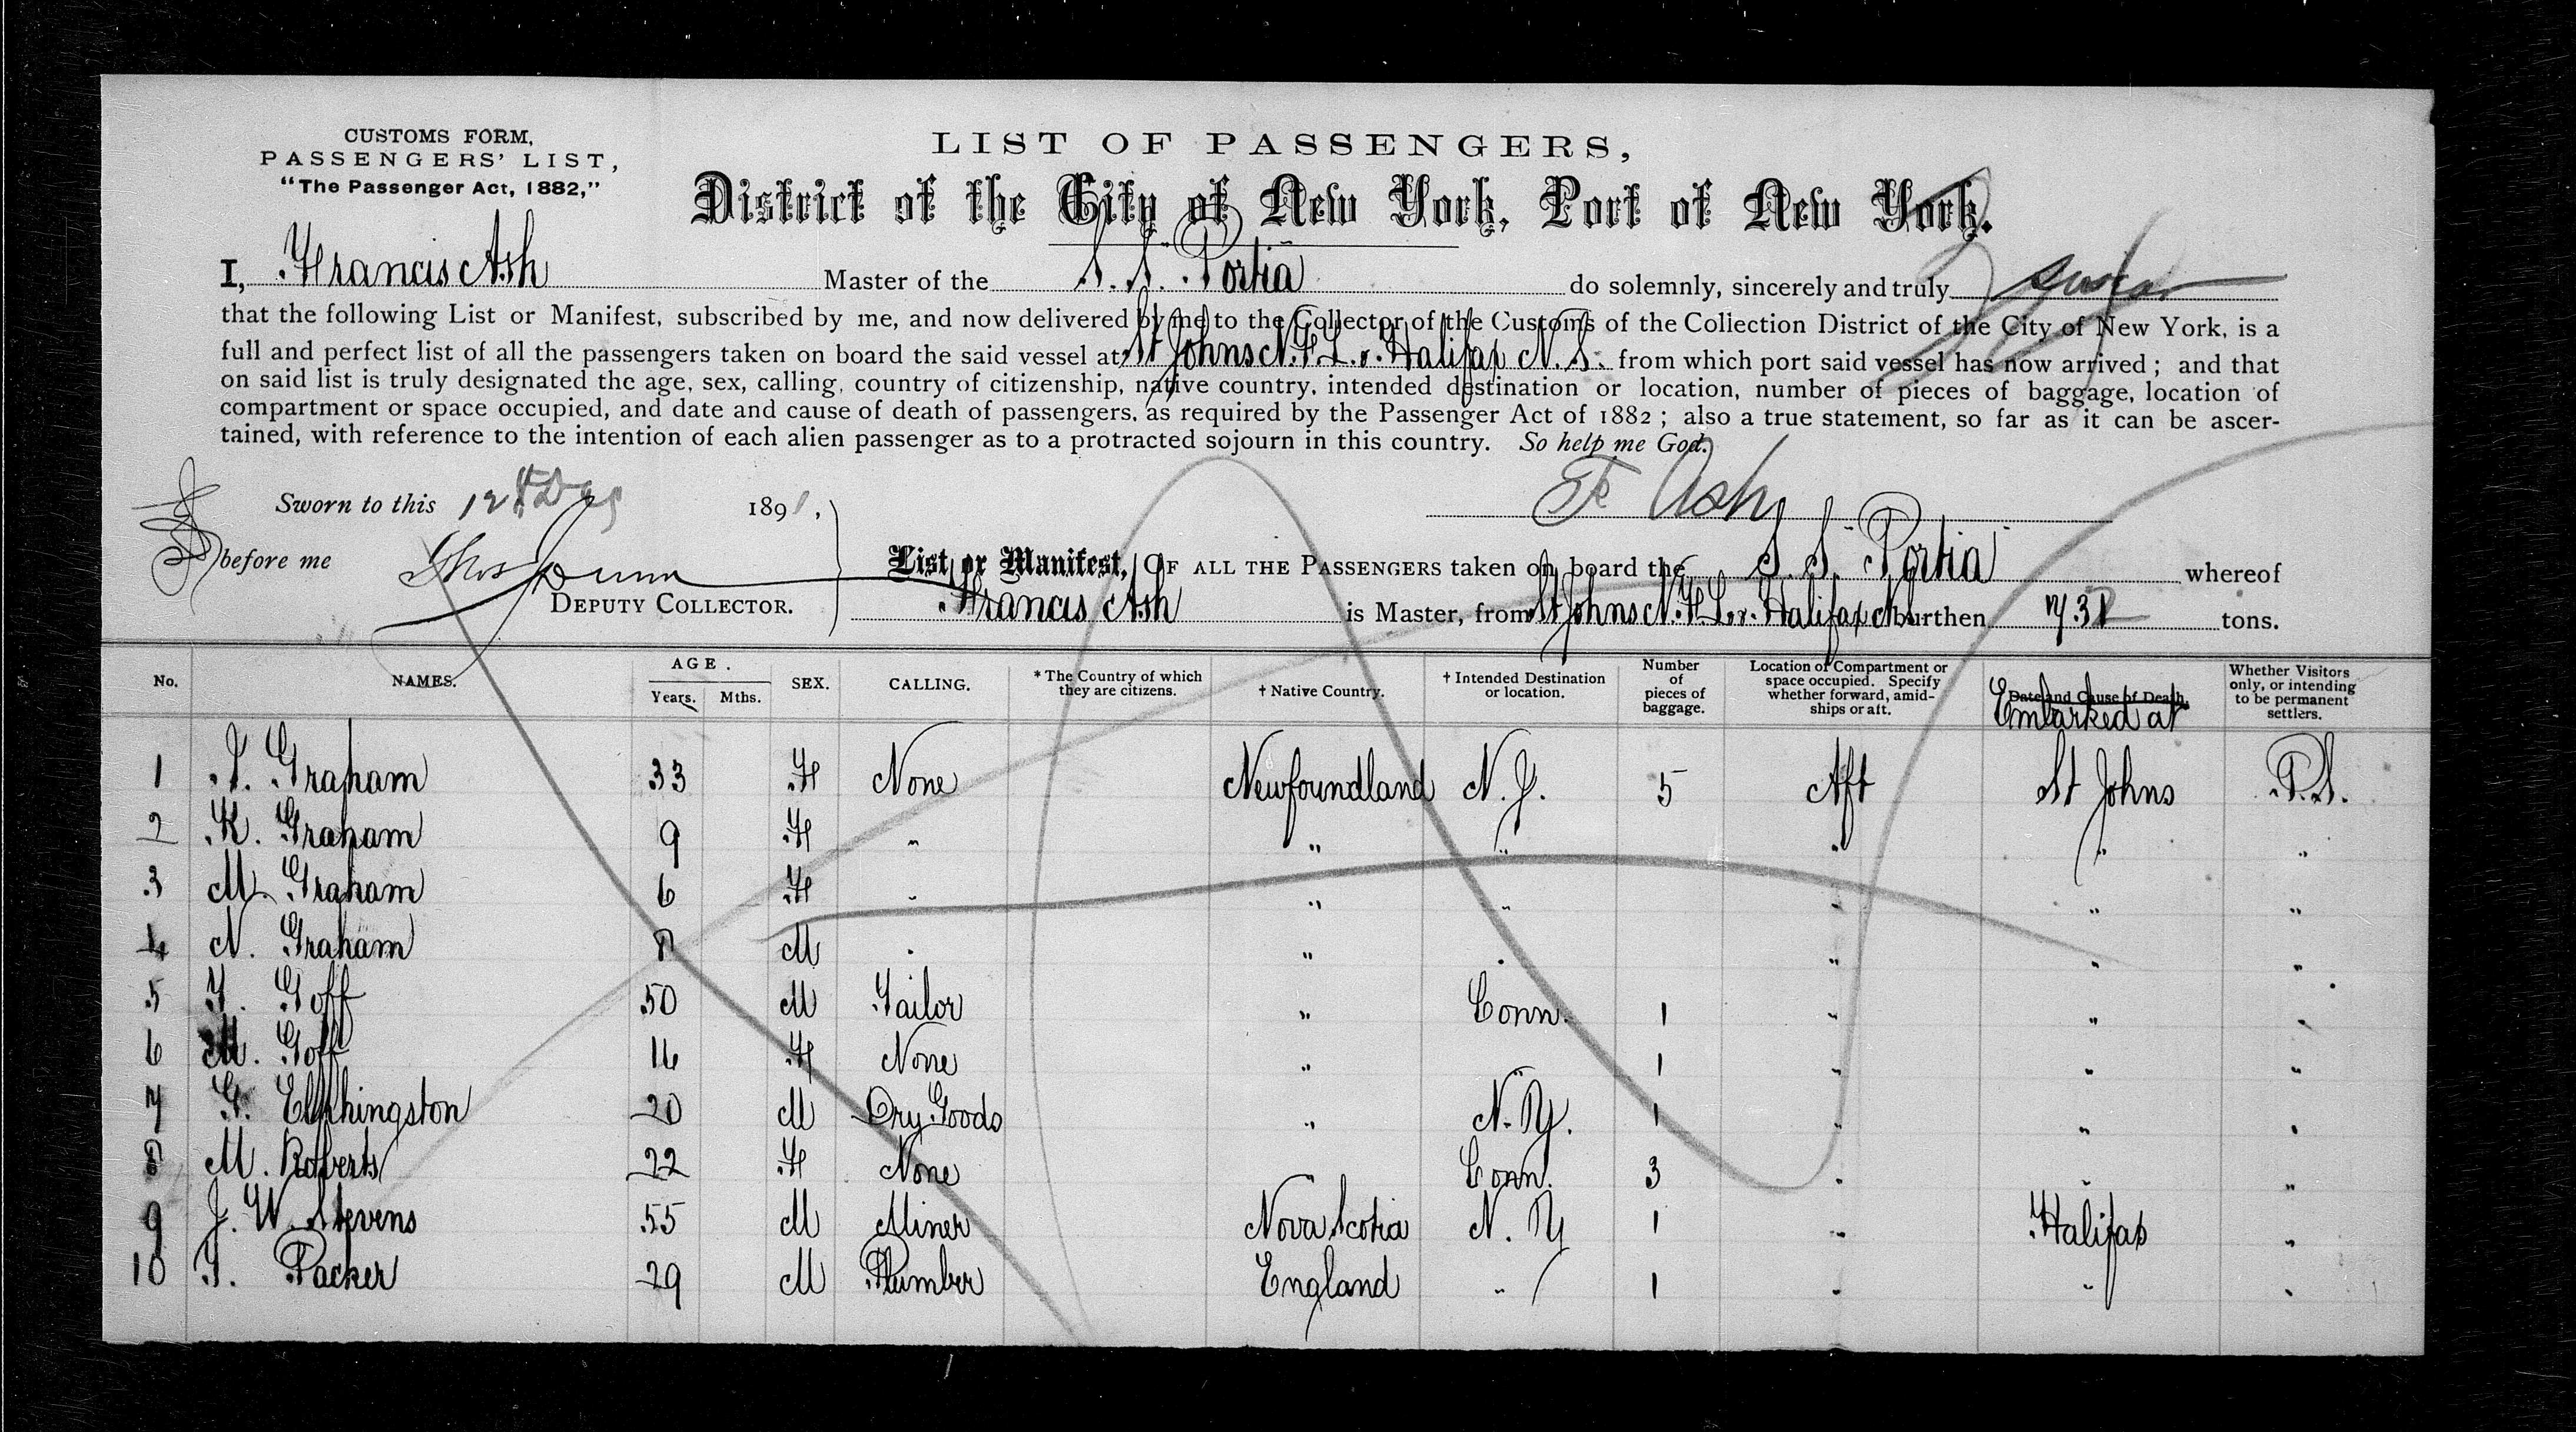 CUSTOMS FORM,
PASSENGERS' LIST,
"The Passenger Act, 1882,"
LIST OF PASSENGERS,
District of the City of New York, Port of New York.
I, Francis Ash Master of the S. S. Portia do solemnly, sincerely and truly swear
that the following List or Manifest, subscribed by me, and now delivered by me to the Collector of the Customs of the Collection District of the City of New York, is a
full and perfect list of all the passengers taken on board the said vessel at St Johns N.F.L. & Halifax N.S. from which port said vessel has now arrived; and that
on said list is truly designated the age, sex, calling, country of citizenship, native country, intended destination or location, number of pieces of baggage, location of
compartment or space occupied, and date and cause of death of passengers, as required by the Passenger Act of 1882; also a true statement, so far as it can be ascer-
tained, with reference to the intention of each alien passenger as to a protracted sojourn in this country. So help me God.
Sworn to this 12th 1891, F Ash
before me Thos Dunn
DEPUTY COLLECTOR.
List or Manifest, OF ALL THE PASSENGERS taken on board the S. S. Portia whereof
Francis Ash is Master, from St Johns N.F.L. & Halifax N.S. burthen 732 tons.
No. NAMES. AGE. Years. Mths. SEX. CALLING. * The Country of which they are citizens. † Native Country. † Intended Destination or location. Number of pieces of baggage. Location of Compartment or space occupied. Specify whether forward, amid-ships or aft. Date and Cause of Death. Embarked at Whether Visitors only, or intending to be permanent settlers.
1 Graham 33 F None Newfoundland N. J. 5 Aft St Johns P.S.
2 K. Graham 9 F " " " " " "
3 M. Graham 6 F " " " " " "
4 N. Graham 8 M " " " " " "
5 Goff 50 M Tailor " Conn. 1 " " "
6 M. Goff 16 F None " " 1 " " "
7 G. Elphingston 20 M Dry Goods " N. Y. 1 " " "
8 M. Roberts 22 F None Conn. 3 " " "
9 J. W. Stevens 55 M Miner Nova Scotia N. Y 1 " Halifax "
10 Packer 29 M Plumber England " 1 " " "